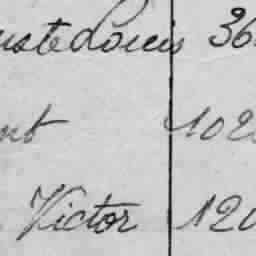 uste Louis 36
nt 102
Victor 120